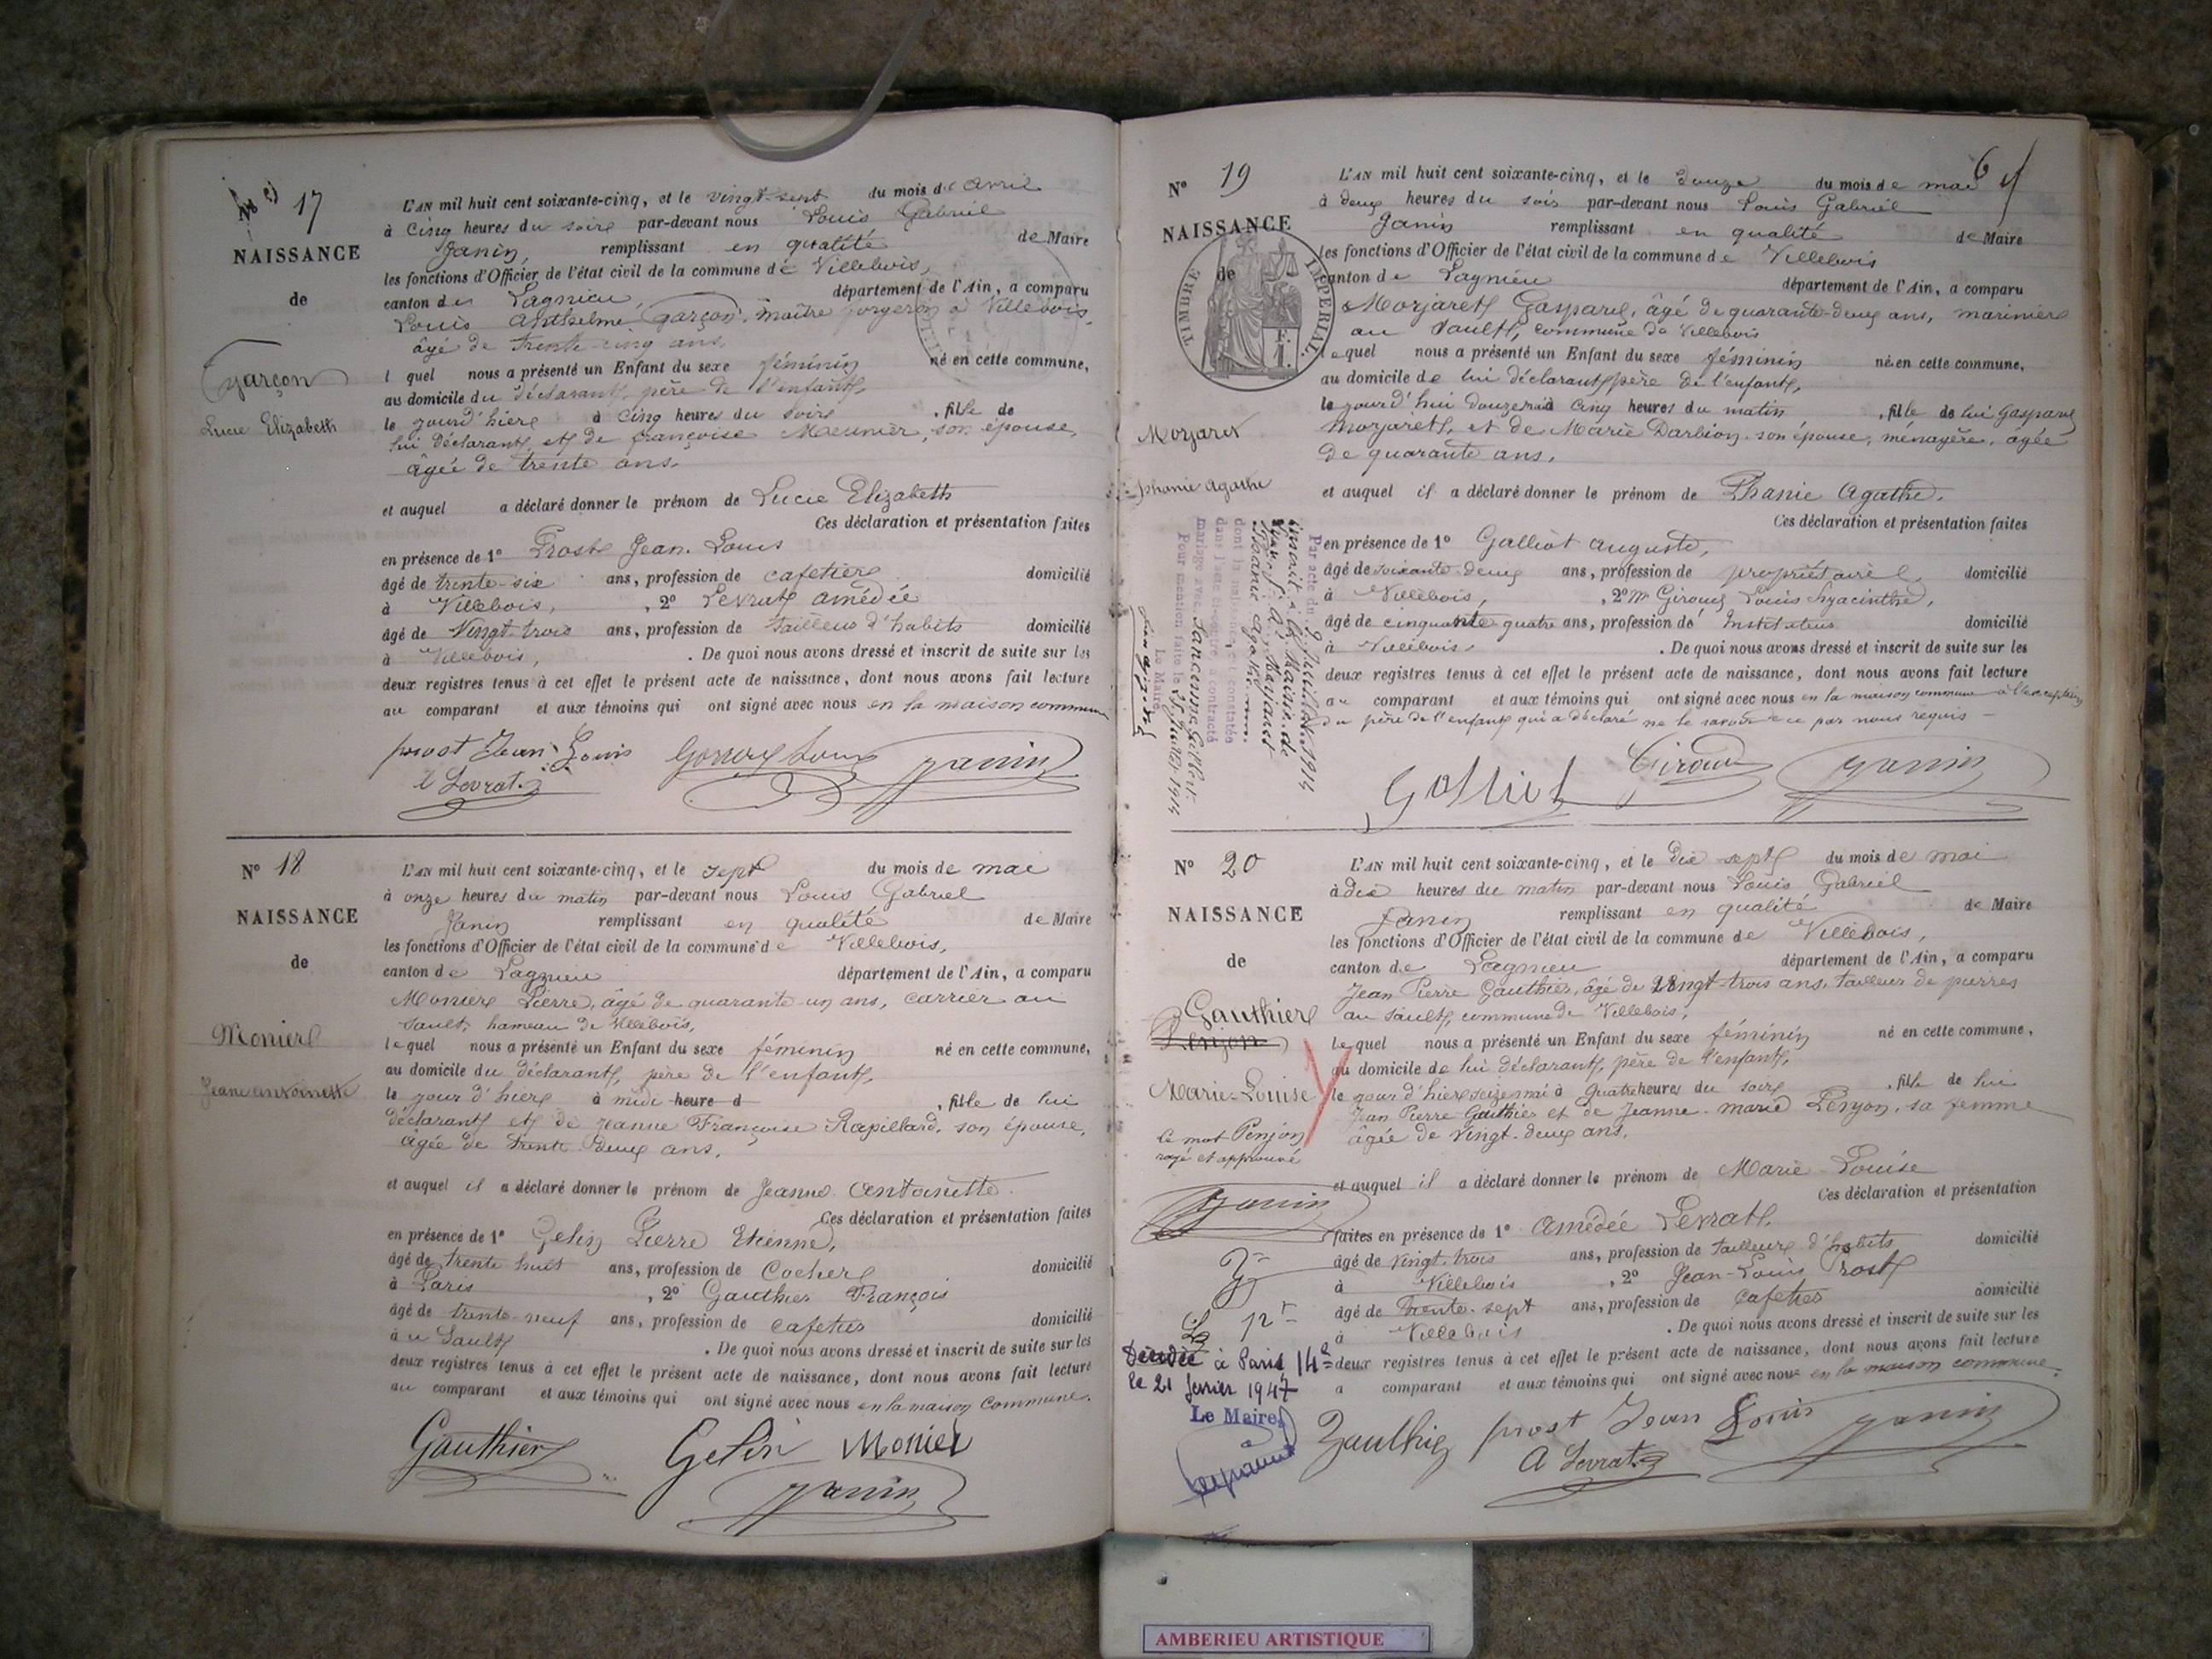 N° 17
NAISSANCE
de
Garçon
Lucie Elizabeth
L'AN mil huit cent soixante-cinq, et le vingt-sept du mois de avril
à cinq heures du soir par-devant nous Louis Gabriel
Janin, remplissant en qualité de Maire
les fonctions d'Officier de l'état civil de la commune de Villebois,
canton de Lagnieu, département de l'Ain, a comparu
Louis Anthelme Garçon, maître forgeron à Villebois,
âgé de trente-cinq ans
lequel nous a présenté un Enfant du sexe féminin né en cette commune,
au domicile du déclarant, père de l'enfant,
le jour d'hier à cinq heures du soir, fille de
lui déclarant, et de françoise Meunier, son épouse,
âgée de trente ans.
et auquel a déclaré donner le prénom de Lucie Elizabeth
Ces déclaration et présentation faites
en présence de 1° Prost Jean-Louis
âgé de trente-six ans, profession de cafetier domicilié
à Villebois, 2° Levrat amédée
âgé de Vingt-trois ans, profession de tailleur d'habits domicilié
à Villebois, . De quoi nous avons dressé et inscrit de suite sur les
deux registres tenus à cet effet le présent acte de naissance, dont nous avons fait lecture
au comparant et aux témoins qui ont signé avec nous en la maison commune
prost Jean-Louis Janin
Levrat
N° 18
NAISSANCE
de
Monier
Jeane antoinette
L'AN mil huit cent soixante-cinq, et le sept du mois de mai
à onze heures du matin par-devant nous Louis Gabriel
Janin remplissant en qualité de Maire
les fonctions d'Officier de l'état civil de la commune de Villebois,
canton de Lagnieu département de l'Ain, a comparu
Monier Pierre, âgé de quarante-un ans, carrier au
Sault, hameau de Villebois,
lequel nous a présenté un Enfant du sexe féminin né en cette commune,
au domicile du déclarant, père de l'enfant,
le jour d'hier à midi heure d , fille de lui
déclarant et de Jeanne Françoise Rapillard, son épouse,
âgée de trente deux ans.
et auquel il a déclaré donner le prénom de Jeanne Antoinette
Ces déclaration et présentation faites
en présence de 1° Gelin Pierre Etienne,
âgé de trente huit ans, profession de Cocher domicilié
à Paris, 2° Gauthier François
âgé de trente-neuf ans, profession de cafetier domicilié
au Sault . De quoi nous avons dressé et inscrit de suite sur les
deux registres tenus à cet effet le présent acte de naissance, dont nous avons fait lecture
au comparant et aux témoins qui ont signé avec nous en la maison commune.
Gauthier Gelin Monier
Janin
6
N° 19
NAISSANCE
de
TIMBRE IMPERIAL
Mozaret
phanie agathe
L'AN mil huit cent soixante-cinq, et le douze du mois de mai
à deux heures du soir par-devant nous Louis Gabriel
Janin remplissant en qualité de Maire
les fonctions d'Officier de l'état civil de la commune de Villebois
canton de Lagnieu département de l'Ain, a comparu
Morjaret Gaspard, âgé de quarante-deux ans, marinier
au Sault, commune de Villebois
lequel nous a présenté un Enfant du sexe féminin né en cette commune,
au domicile de lui déclarant père de l'enfant,
le jour d'hui douze mai à cinq heures du matin, fille de lui Gaspard
Morjaret, et de Marie Darbion son épouse, ménagère, âgée
de quarante ans.
et auquel il a déclaré donner le prénom de Phanie Agathe.
Ces déclaration et présentation faites
en présence de 1° Galliot auguste,
âgé de soixante-deux ans, profession de propriétaire domicilié
à Villebois, 2° Mr Giroud Louis hyacinthe,
âgé de cinquante-quatre ans, profession de Instituteur domicilié
à Villebois . De quoi nous avons dressé et inscrit de suite sur les
deux registres tenus à cet effet le présent acte de naissance, dont nous avons fait lecture
au comparant et aux témoins qui ont signé avec nous en la maison commune à l'exception
du père de l'enfant qui a déclaré ne le savoir de ce par nous requis
Galliot Giroud Janin
Par acte du 9 Juillet 1914
inscrit à la Mairie de
Phanie Agathe
dont la naissance est constatée
dans l'acte ci-contre, a contracté
mariage avec
Pour mention faite le 25 Juillet 1914
Le Maire
N° 20
NAISSANCE
de
Gauthier
Penjon
Marie-Louise
le mot Penjon
rayé et approuvé
Janin
Décédée à Paris 14e
le 21 février 1947
Le Maire,
L'AN mil huit cent soixante-cinq, et le dix sept du mois de mai
à dix heures du matin par-devant nous Louis Gabriel
Janin remplissant en qualité de Maire
les fonctions d'Officier de l'état civil de la commune de Villebois,
canton de Lagnieu département de l'Ain, a comparu
Jean Pierre Gauthier, âgé de vingt-trois ans, tailleur de pierres
au Sault, commune de Villebois,
lequel nous a présenté un Enfant du sexe féminin né en cette commune,
au domicile de lui déclarant, père de l'enfant,
le jour d'hier seize mai à quatre heures du soir, fille de lui
Jean Pierre Gauthier et de Jeanne-marie Penjon, sa femme
âgée de vingt-deux ans.
et auquel il a déclaré donner le prénom de Marie-Louise
Ces déclaration et présentation
faites en présence de 1° Amédée Levrat,
âgé de vingt-trois ans, profession de tailleur d'habits domicilié
à Villebois, 2° Jean-Louis Prost
âgé de trente-sept ans, profession de cafetier domicilié
à Villebois . De quoi nous avons dressé et inscrit de suite sur les
deux registres tenus à cet effet le présent acte de naissance, dont nous avons fait lecture
a comparant et aux témoins qui ont signé avec nous en la maison commune.
prost Jean Louis Janin
A Levrat
AMBERIEU ARTISTIQUE